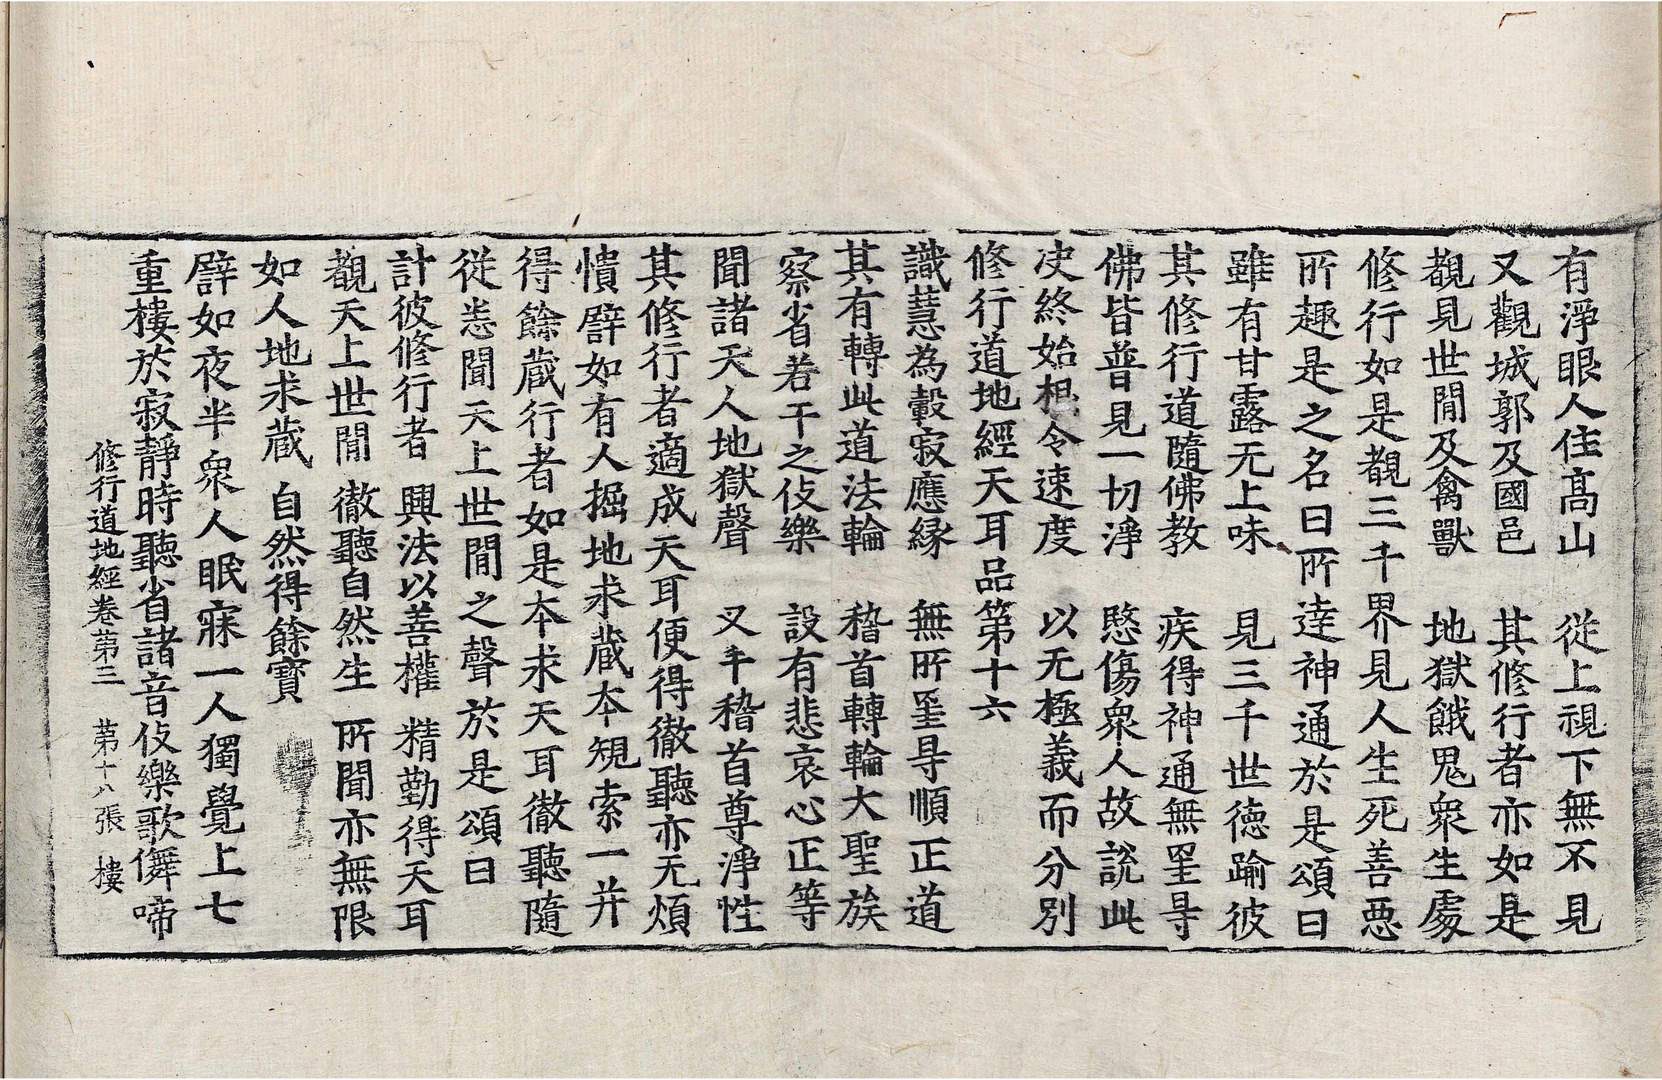 有淨眼人住高山　從上視下無不見
又觀城郭及國邑　其修行者亦如是
覩見世閒及禽獸　地獄餓鬼衆生處
修行如是覩三千界見人生死善惡
所趣是之名曰所達神通於是頌曰
雖有甘露无上味　見三千世德踰彼
其修行道隨佛教　疾得神通無罣㝵
佛皆普見一切淨　愍傷衆人故說此
决終始相令速度　以无極義而分別
修行道地經天耳品第十六
識慧為轂寂應縁　無所罣㝵順正道
其有轉此道法輪　稽首轉輪大聖族
察省若干之伎樂　設有悲哀心正等
聞諸天人地獄聲　叉手稽首尊淨性
其修行者適成天耳便得徹聽亦无煩
憒譬如有人掘地求蔵本規索一并
得餘蔵行者如是本求天耳徹聽隨
從悉聞天上世閒之聲於是頌曰
計彼修行者　興法以善權　精勤得天耳
覩天上世閒　徹聽自然生　所聞亦無限
如人地求蔵　自然得餘寶
譬如夜半衆人眠寐一人獨覺上七
重樓於寂靜時聽省諸音伎樂歌儛啼
修行道地經卷第三　第十八張　樓